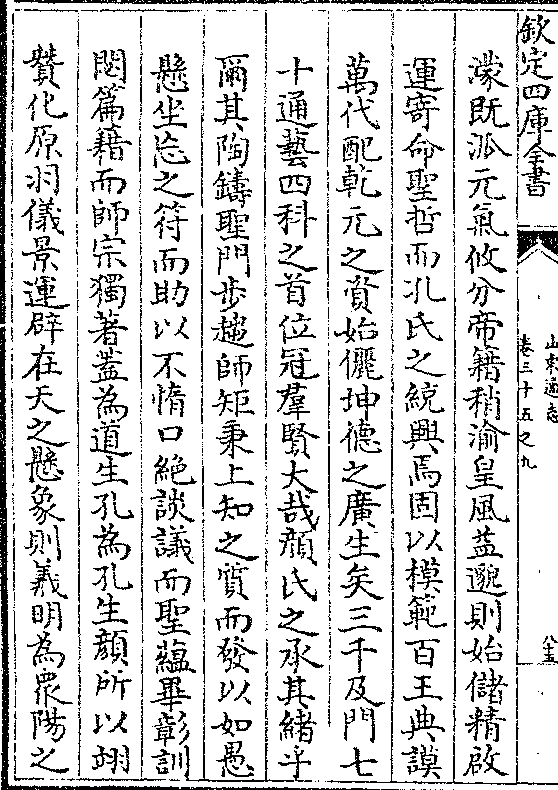 欽定四庫全書
山東通志
卷三十五之九
濛既派元氣攸分帝籍稍渝皇風葢邈則始儲精啟
運寄命聖哲而孔氏之統興焉固以模範百王典謨
萬代配乾元之資始儷坤德之廣生矣三千及門七
十通藝四科之首位冠羣賢大哉顔氏之承其緒乎
爾其陶鑄聖門步趨師矩秉上知之質而發以如愚
懸坐忘之符而助以不惰口絶談議而聖蘊畢彰訓
閟篇籍而師宗獨著葢為道生孔為孔生顔所以翊
賛化原羽儀景運辟在天之懸象則羲明為衆陽之